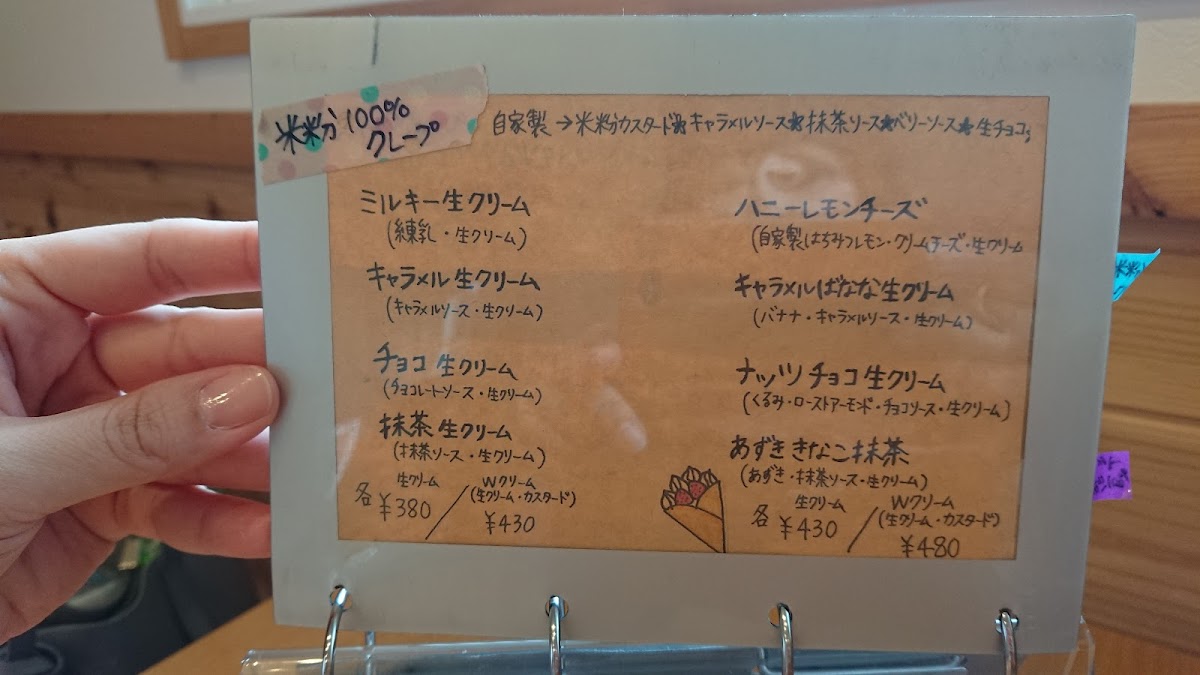 米粉100%
クレープ
自家製→米粉カスタード★キャラメルソース★抹茶ソース★ベリーソース★生チョコ
ミルキー生クリーム
(練乳・生クリーム)
キャラメル生クリーム
(キャラメルソース・生クリーム)
チョコ生クリーム
(チョコレートソース・生クリーム)
抹茶生クリーム
(抹茶ソース・生クリーム)
各 生クリーム ¥380 / Wクリーム (生クリーム・カスタード) ¥430
ハニーレモンチーズ
(自家製はちみつレモン・クリームチーズ・生クリーム
キャラメルばなな生クリーム
(バナナ・キャラメルソース・生クリーム)
ナッツチョコ生クリーム
(くるみ・ローストアーモンド・チョコソース・生クリーム)
あずききなこ抹茶
(あずき・抹茶ソース・生クリーム)
各 生クリーム ¥430 / Wクリーム (生クリーム・カスタード) ¥480
米粉